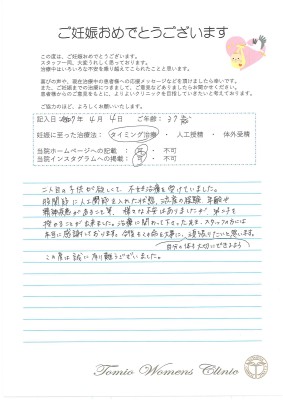 ご妊娠おめでとうございます
この度は、ご妊娠おめでとうございます。
スタッフ一同、大変うれしく思っております。
治療中はいろいろな不安を乗り越えてこられたことと思います。
喜びの声や、現在治療中の患者様への応援メッセージなどを頂けましたら幸いです。
また、ご妊娠までの治療につきまして、ご意見などありましたらお聞かせください。
患者様からのご意見をもとに、よりよいクリニックを目指していきたいと考えております。
ご協力のほど、よろしくお願いいたします。
記入日 年 4月 4日 ご年齢: 39歳
妊娠に至った治療法: タイミング治療 ・ 人工授精 ・ 体外受精
当院ホームページへの記載 : 可 ・ 不可
当院インスタグラムへの掲載 : 可 ・ 不可
二人目の子供が欲しくて、不妊治療を受けていました。
股関節に人工関節を入れた状態、流産の経験、年齢や
があること等、様々な不安はありましたが、第2子を
授かることが出来ました。治療に関わって下さった先生、スタッフの方には
本当に感謝しております。今後もこの命を大事に、頑張りたいと思います。
自分の体も大切にできるよう
この度は誠に有り難うございました。
Tomio Womens Clinic